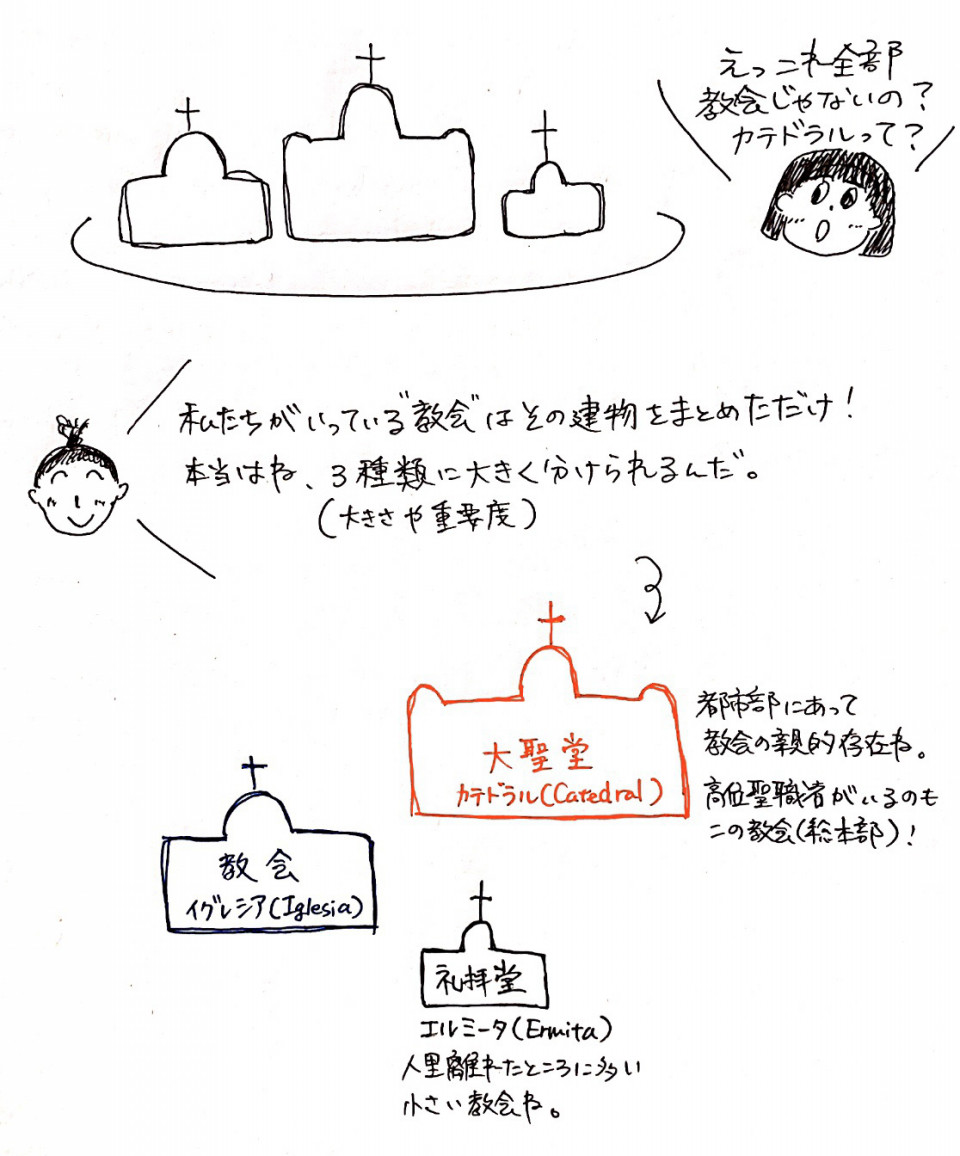 えっこれ全部
教会じゃないの?
カテドラルって?
私たちがいっている"教会"はその建物をまとめただけ!
本当はね、3種類に大きく分けられるんだ。
(大きさや重要度)
大聖堂
カテドラル(Catedral)
都市部にあって
教会の親的存在ね。
高位聖職者がいるのも
この教会(総本部)!
教会
イグレシア(Iglesia)
礼拝堂
エルミータ(Ermita)
人里離れたところに多い
小さい教会ね。